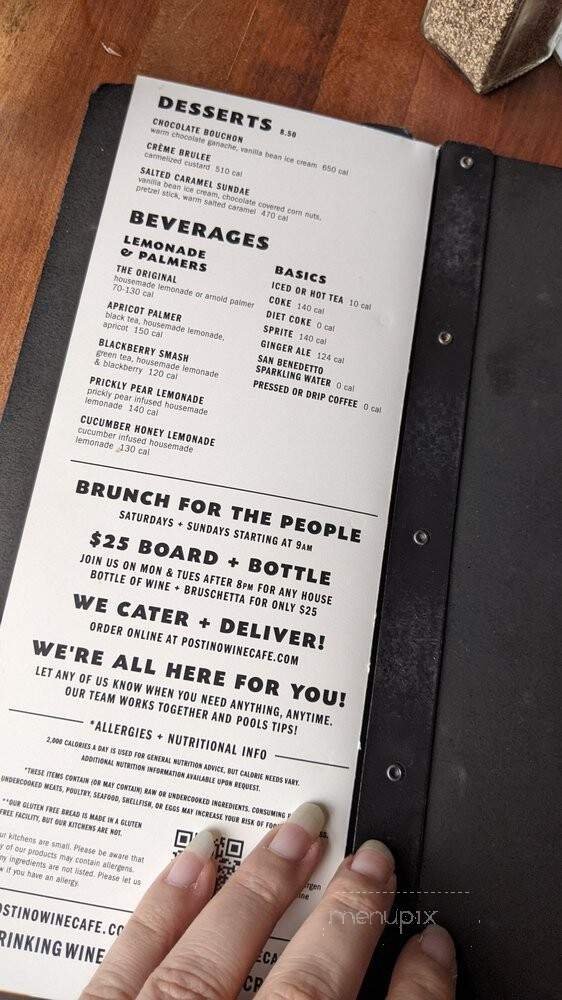 DESSERTS 8.50
CHOCOLATE BOUCHON
warm chocolate ganache, vanilla bean ice cream 650 cal
CRÈME BRULEE
carmelized custard 510 cal
SALTED CARAMEL SUNDAE
vanilla bean ice cream, chocolate covered corn nuts,
pretzel stick, warm salted caramel 470 cal
BEVERAGES
LEMONADE
& PALMERS
THE ORIGINAL
housemade lemonade or arnold palmer
70-130 cal
APRICOT PALMER
black tea, housemade lemonade,
apricot 150 cal
BLACKBERRY SMASH
green tea, housemade lemonade
& blackberry 120 cal
PRICKLY PEAR LEMONADE
prickly pear infused housemade
lemonade 140 cal
CUCUMBER HONEY LEMONADE
cucumber infused housemade
lemonade 130 cal
BASICS
ICED OR HOT TEA 10 cal
COKE 140 cal
DIET COKE 0 cal
SPRITE 140 cal
GINGER ALE 124 cal
SAN BENEDETTO
SPARKLING WATER 0 cal
PRESSED OR DRIP COFFEE 0 cal
BRUNCH FOR THE PEOPLE
SATURDAYS + SUNDAYS STARTING AT 9AM
$25 BOARD + BOTTLE
JOIN US ON MON & TUES AFTER 8PM FOR ANY HOUSE
BOTTLE OF WINE + BRUSCHETTA FOR ONLY $25
WE CATER + DELIVER!
ORDER ONLINE AT POSTINOWINECAFE.COM
WE'RE ALL HERE FOR YOU!
LET ANY OF US KNOW WHEN YOU NEED ANYTHING, ANYTIME.
OUR TEAM WORKS TOGETHER AND POOLS TIPS!
*ALLERGIES + NUTRITIONAL INFO
2,000 CALORIES A DAY IS USED FOR GENERAL NUTRITION ADVICE, BUT CALORIE NEEDS VARY.
ADDITIONAL NUTRITION INFORMATION AVAILABLE UPON REQUEST.
*THESE ITEMS CONTAIN (OR MAY CONTAIN) RAW OR UNDERCOOKED INGREDIENTS. CONSUMING
UNDERCOOKED MEATS, POULTRY, SEAFOOD, SHELLFISH, OR EGGS MAY INCREASE YOUR RISK OF
**OUR GLUTEN FREE BREAD IS MADE IN A GLUTEN
FREE FACILITY, BUT OUR KITCHENS ARE NOT.
kitchens are small. Please be aware that
of our products may contain allergens.
ingredients are not listed. Please let us
if you have an allergy.
POSTINOWINECAFE.CO
DRINKINGWINE
menupix